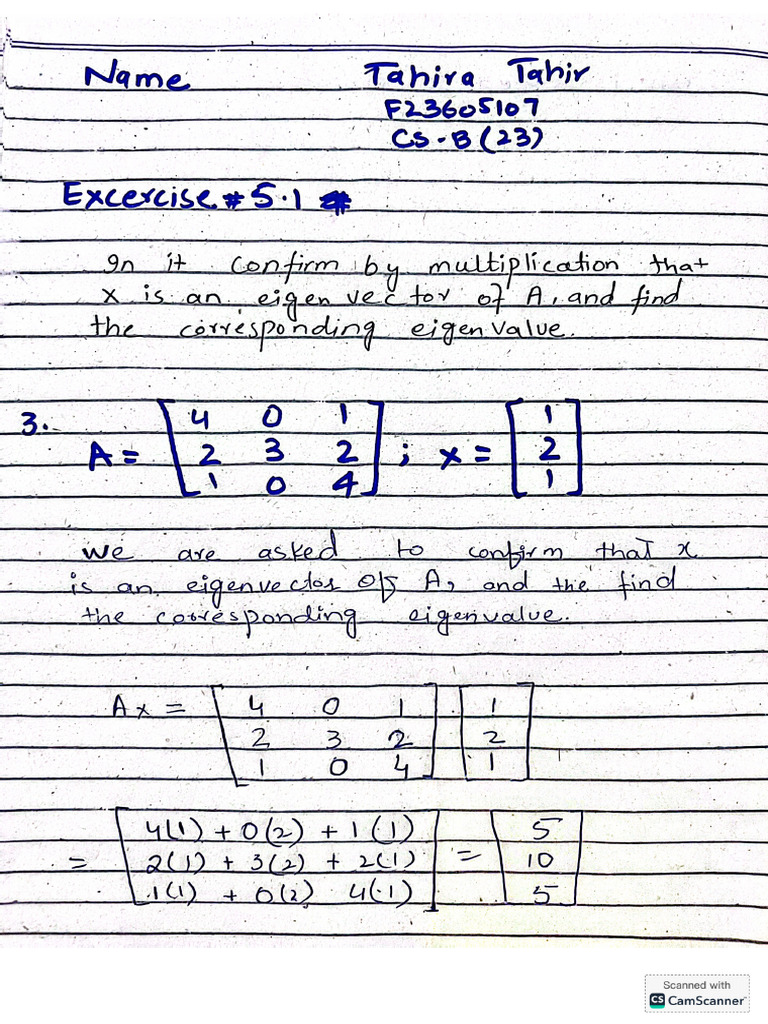 Name Tahira Tahir
F23605107
CS-B(23)
Excercise # 5.1 #
In it confirm by multiplication that
x is an eigen vector of A, and find
the corresponding eigen value.
3. A = [ 4 0 1 ; x = [ 1
2 3 2 2
1 0 4 ] 1 ]
we are asked to confirm that x
is an eigenvector of A, and the find
the corresponding eigenvalue.
Ax = [ 4 0 1 ] [ 1 ]
2 3 2 2
1 0 4 1
= [ 4(1) + 0(2) + 1(1) ] = [ 5 ]
2(1) + 3(2) + 2(1) 10
1(1) + 0(2) 4(1) 5
Scanned with
CS CamScanner